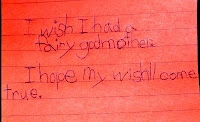 I wish I had a
fairy godmother.
I hope my wish'll come
true.